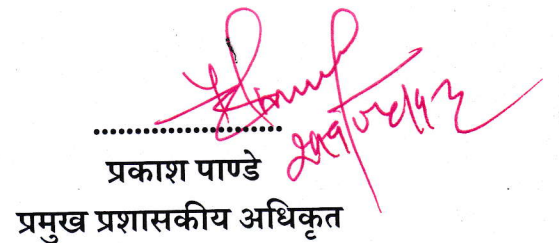 ..............................
प्रकाश पाण्डे
प्रमुख प्रशासकीय अधिकृत